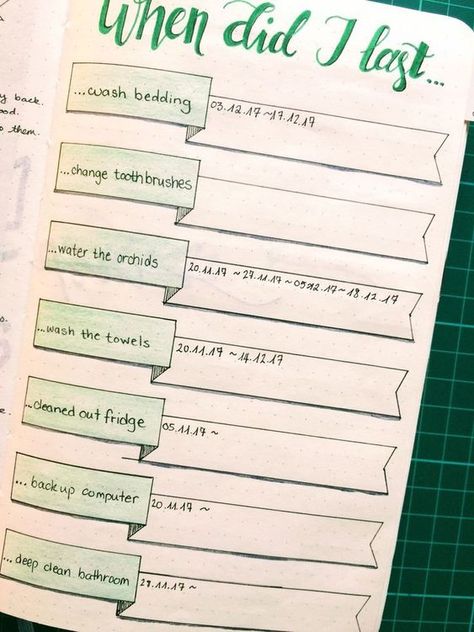 When did I last...
...wash bedding
03.12.17 ~ 17.12.17
...change toothbrushes
...water the orchids
20.11.17 ~ 27.11.17 ~ 05.12.17 ~ 18.12.17
...wash the towels
20.11.17 ~ 14.12.17
...cleaned out fridge
05.11.17 ~
...backup computer
20.11.17 ~
...deep clean bathroom
27.11.17 ~
back.
to them.